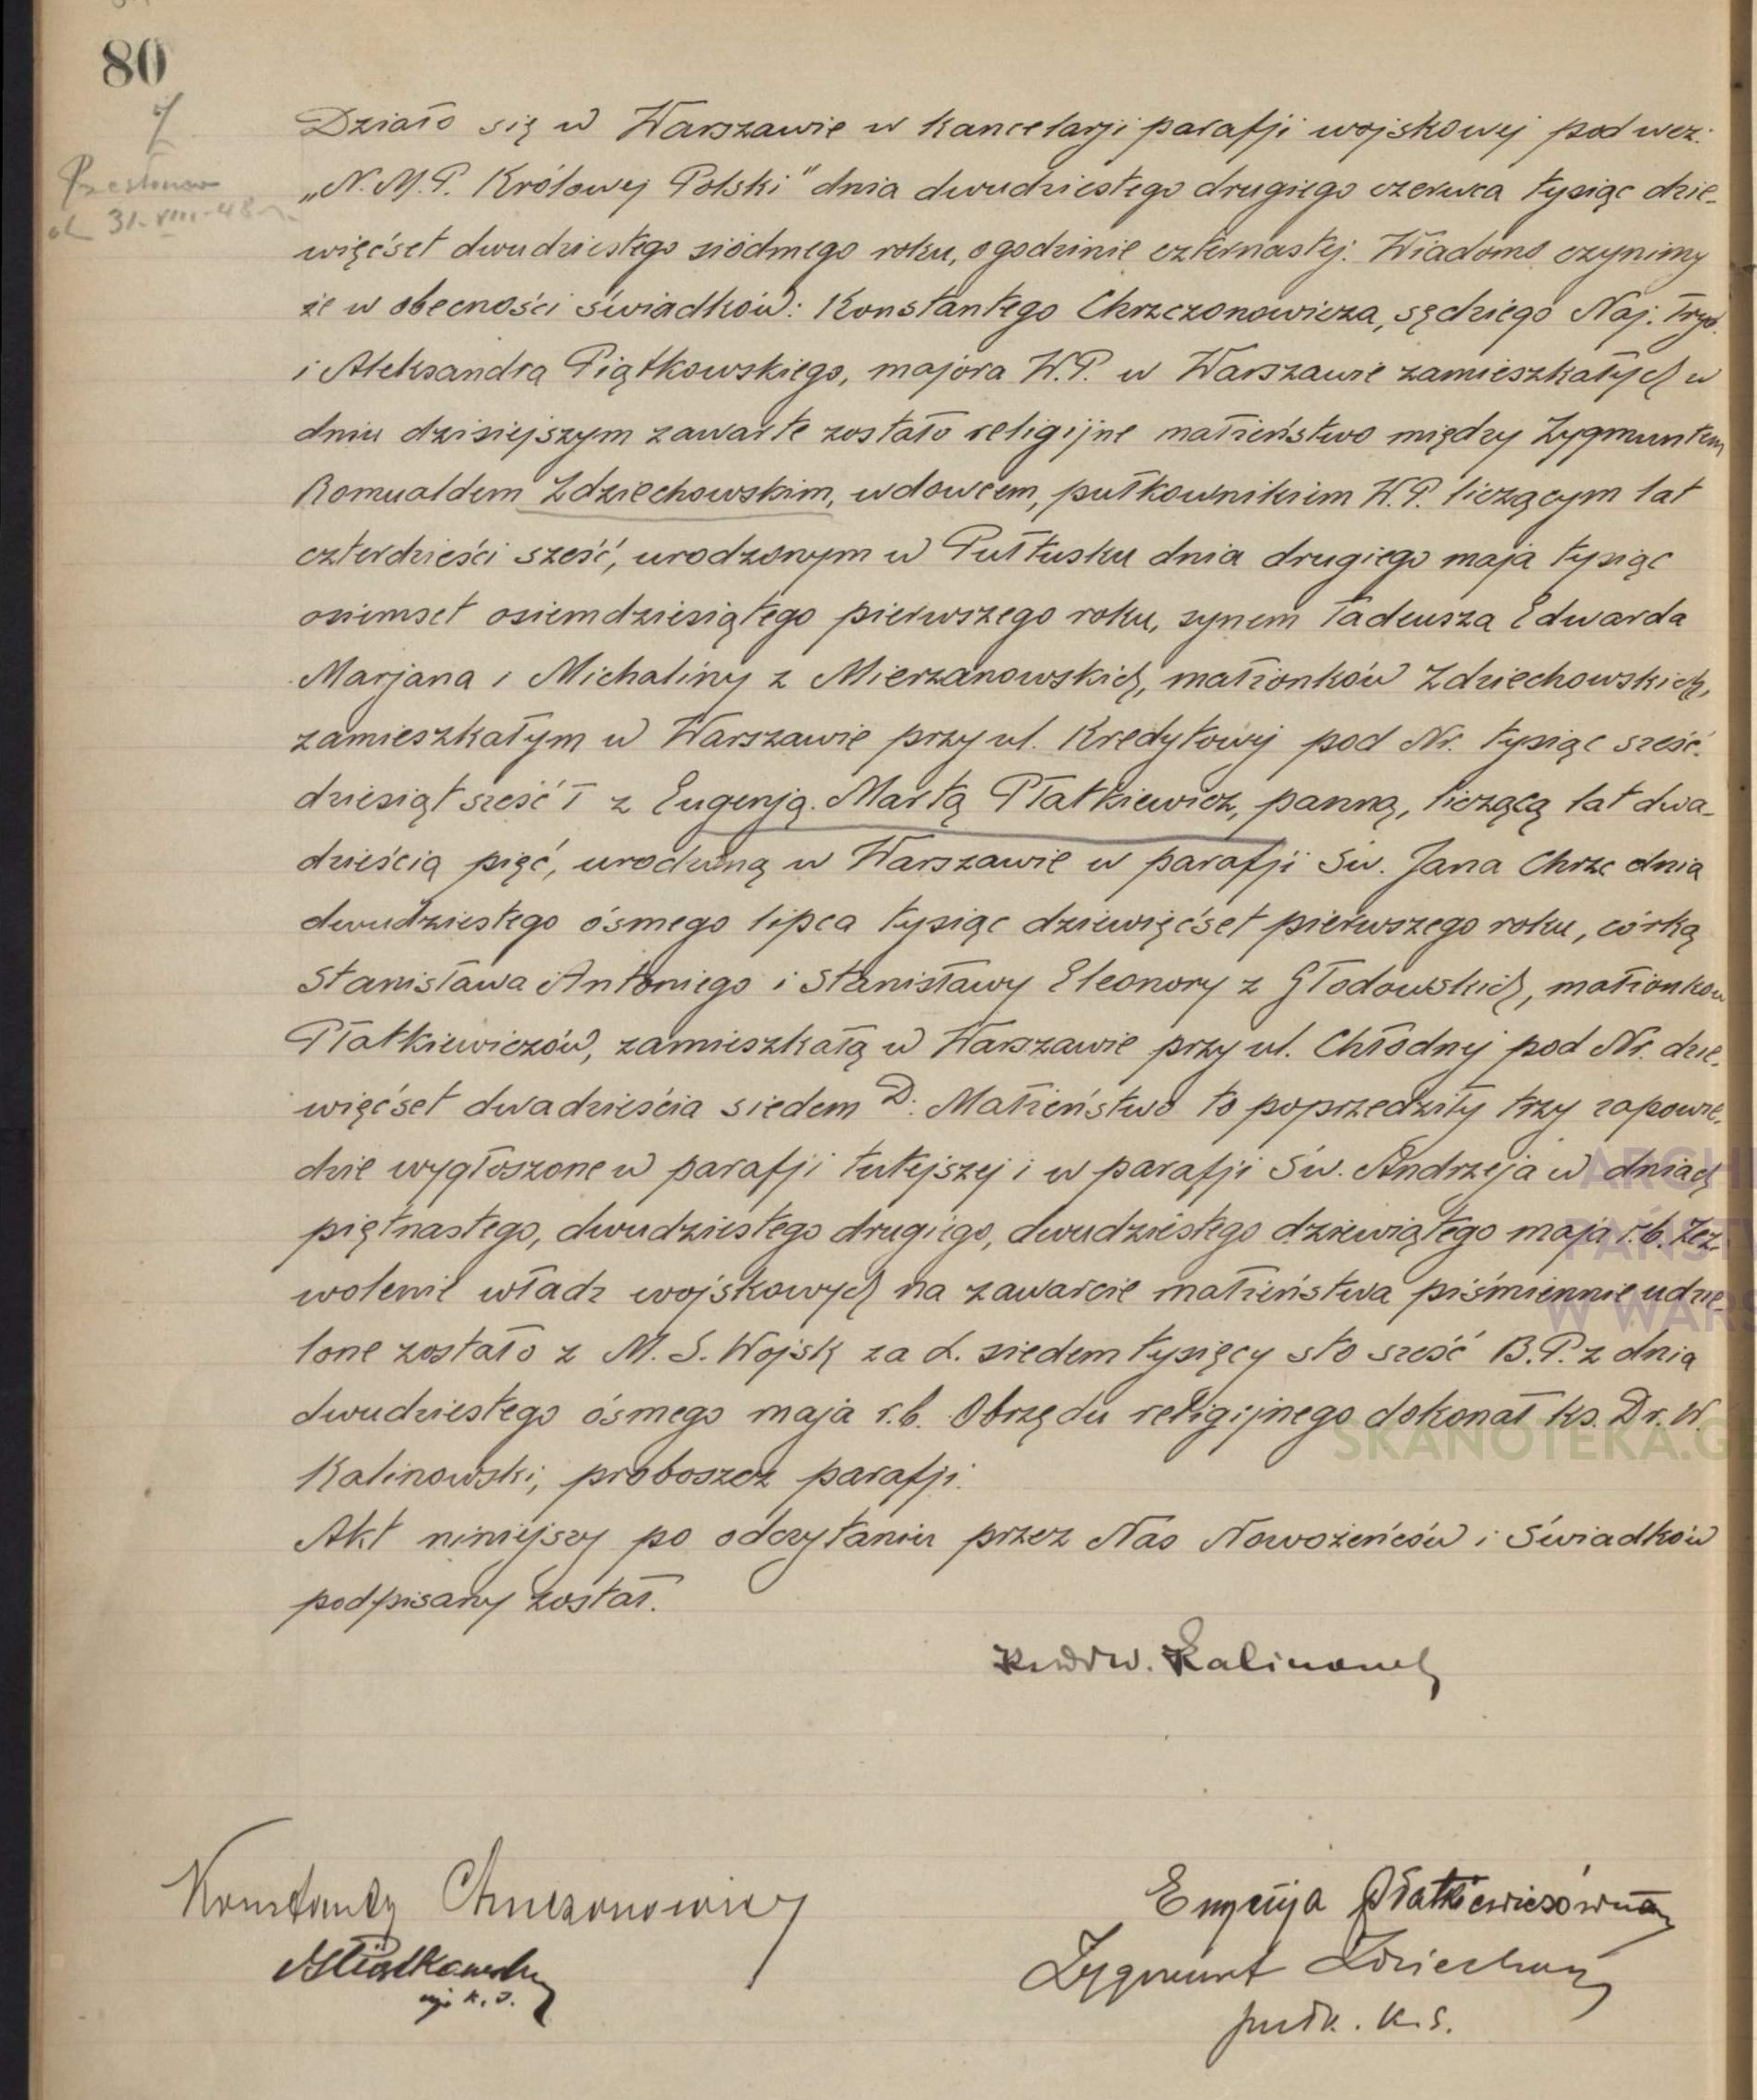 80
31-VIII-48
Działo się w Warszawie w kancelarji parafji wojskowej pod wez.
„N.M.P. Królowej Polski" dnia dwudziestego drugiego czerwca tysiąc dzie-
więćset dwudziestego siódmego roku, o godzinie czternastej. Wiadomo czynimy
że w obecności świadków: Konstantego Chrzczonowicza, sędziego Naj. Tryb.
i Aleksandra Piątkowskiego, majora W.P. w Warszawie zamieszkałych w
dniu dzisiejszym zawarte zostało religijne małżeństwo między Zygmuntem
Romualdem Zdziechowskim, wdowcem, pułkownikiem W.P. liczącym lat
czterdzieści sześć, urodzonym w Pułtusku dnia drugiego maja tysiąc
osiemset osiemdziesiątego pierwszego roku, synem Tadeusza Edwarda
Marjana i Michaliny z Mierzanowskich, małżonków Zdziechowskich,
zamieszkałym w Warszawie przy ul. Kredytowej pod Nr. tysiąc sześć-
dziesiąt sześć I z Eugenją Martą Płatkiewicz, panną, liczącą lat dwa-
dzieścia pięć, urodzoną w Warszawie w parafji Św. Jana Chrzc dnia
dwudziestego ósmego lipca tysiąc dziewięćset pierwszego roku, córką
Stanisława Antoniego i Stanisławy Eleonory z Głodowskich, małżonków
Płatkiewiczów, zamieszkałą w Warszawie przy ul. Chłodnej pod Nr. dzie-
więćset dwadzieścia siedem D. Małżeństwo to poprzedziły trzy zapowie-
dzie wygłoszone w parafji tutejszej i w parafji Św. Andrzeja w dniach
piętnastego, dwudziestego drugiego, dwudziestego dziewiątego maja r.b. Zez-
wolenie władz wojskowych na zawarcie małżeństwa piśmiennie udzie-
lone zostało z M.S. Wojsk za L. siedem tysięcy sto sześć B.P. z dnia
dwudziestego ósmego maja r.b. Obrzędu religijnego dokonał ks. Dr. W.
Kalinowski, proboszcz parafji.
Akt niniejszy po odczytaniu przez Nas Nowożeńców i Świadków
podpisany został.
Ks. Dr W. Kalinowski
Konstanty Chrzczonowicz
APiątkowski
mjr K.S.
Eugenja Płatkiewiczówna
Zygmunt Zdziechowski
pułk. K.S.
ARCHI
PAŃSTW
W WARS
SKANOTEKA.G